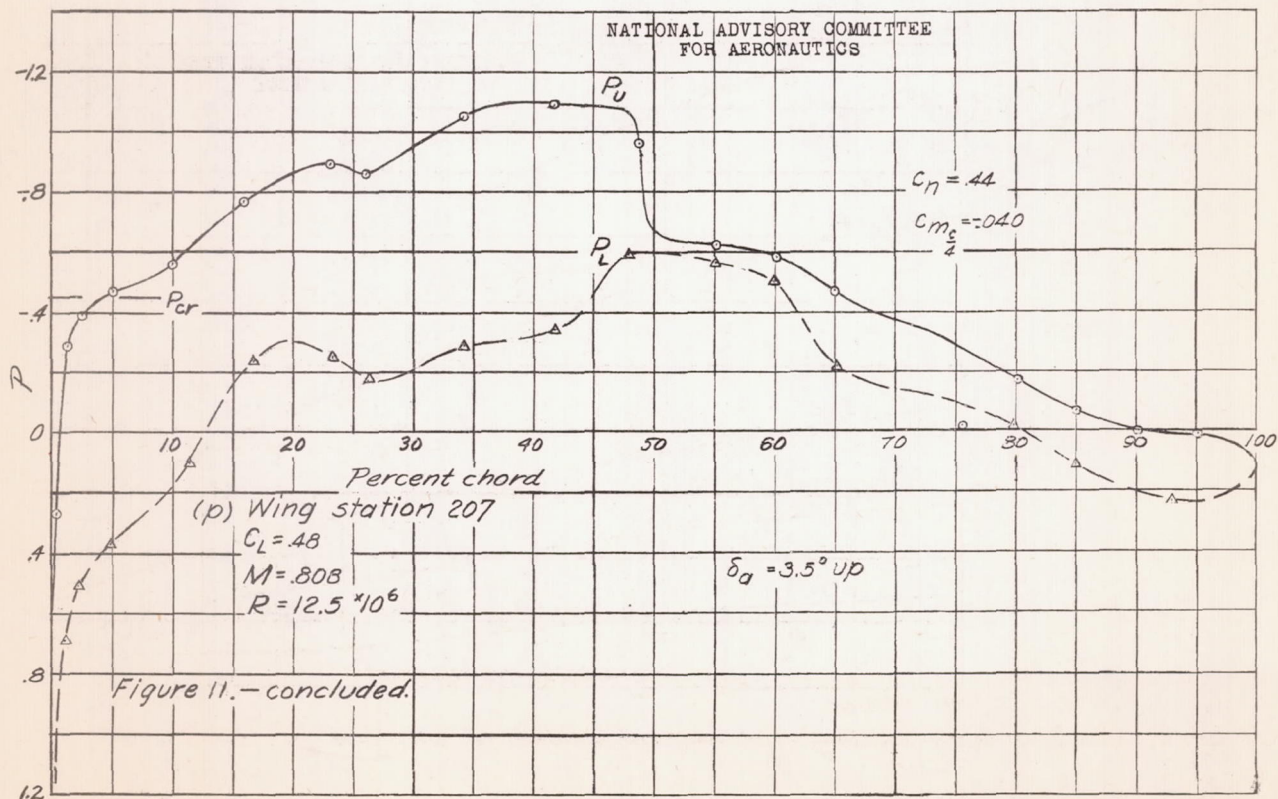 NATIONAL ADVISORY COMMITTEE
FOR AERONAUTICS
-1.2
-.8
-.4
0
.4
.8
1.2
P
P_U
P_L
P_cr
C_n = .44
C_m_c/4 = -.040
10 20 30 40 50 60 70 80 90 100
Percent chord
(p) Wing station 207
C_L = .48
M = .808
R = 12.5 × 10⁶
δ_a = 3.5° up
Figure 11.- concluded.